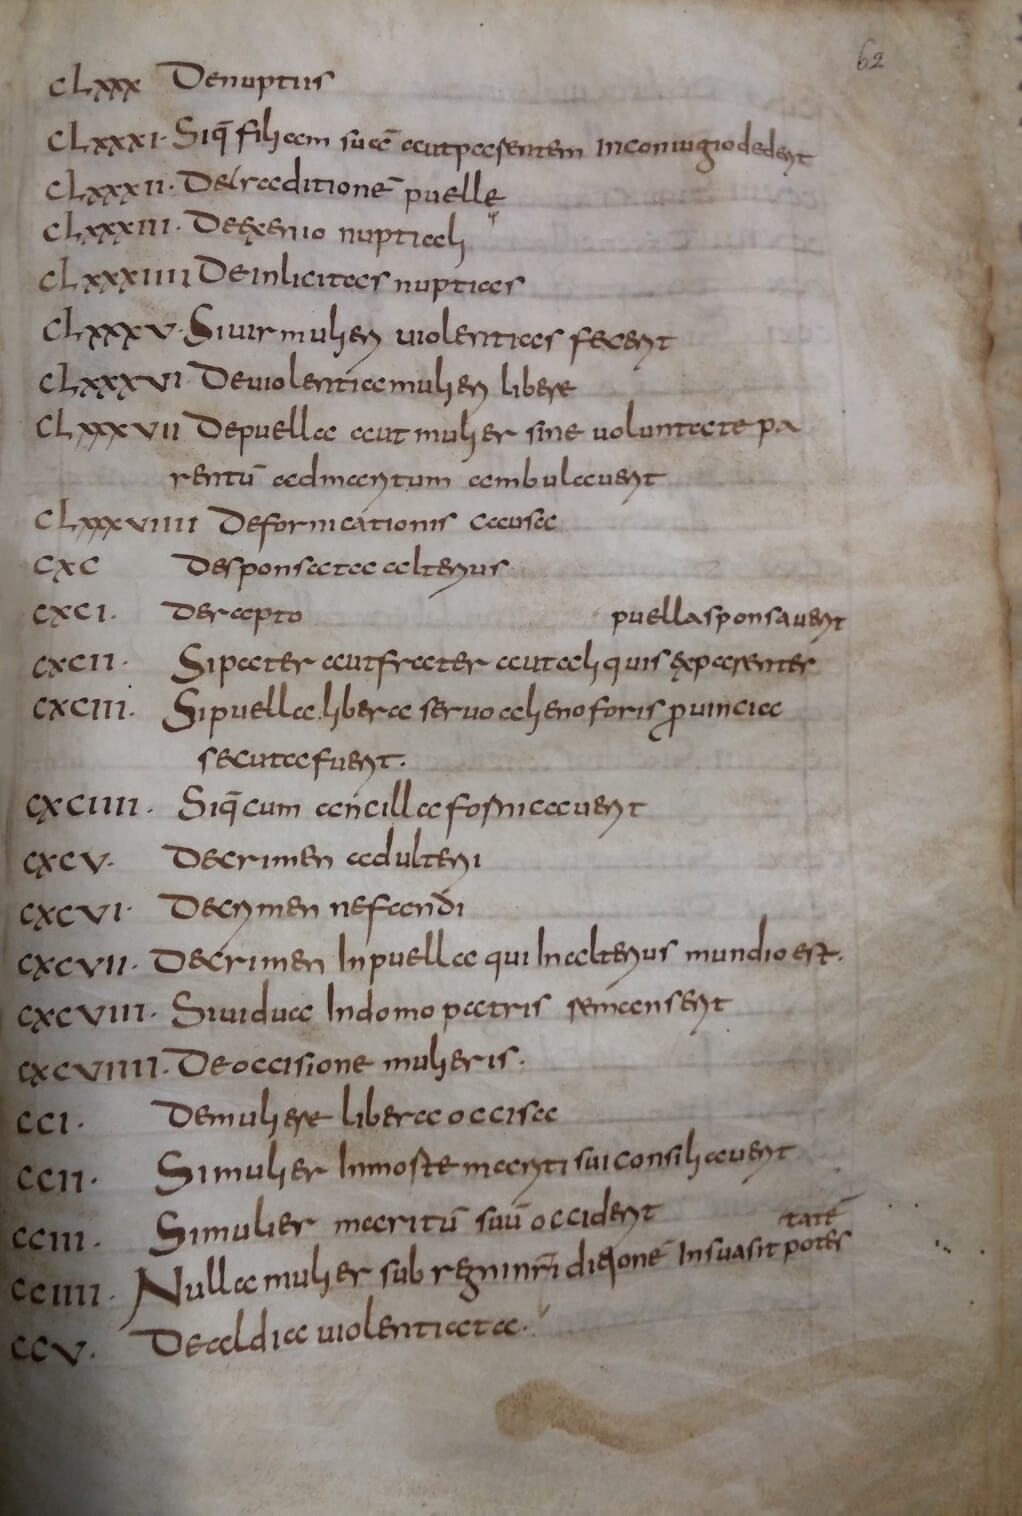 62
CLXXX Denuptiis
CLXXXI· Siq̄ filiam suā autparentem Inconiugiodederit
CLXXXII· Detraditionē puellę
CLXXXIII· Deexenio nuptiali
CLXXXIIII Deinlicitas nuptias
CLXXXV· Siuir mulieri uiolentias fecerit
CLXXXVI· Deuiolentiamulieri libere
CLXXXVII Depuella aut mulier sine uoluntate pa
rentū admaritum ambulauerit
CLXXXVIIII Defornicationis causa
CXC Desponsata alterius
CXCI· Deraepto puellasponsauerit
CXCII· Sipater autfrater autaliquis exparenter
CXCIII· Sipuella libera seruo alienoforis ꝓuincia
secutafuerit·
CXCIIII· Siq̄cum ancillafornicauerit
CXCV· Decrimen adulterii
CXCVI· Decrimen nefandi
CXCVII· Decrimen Inpuella qui Inalterius mundio est·
CXCVIII· Siuidua Indomo patris remanserit
CXCVIIII· Deoccisione mulieris·
CCI· Demuliere libera occisa
CCII· Simulier Inmorte mariti sui consiliauerit
CCIII· Simulier maritū suū occiderit
CCIIII· Nulla mulier sub regni nr̄i dicionē Insuasit potes
tatē
CCV· Dealdia uiolentiata·